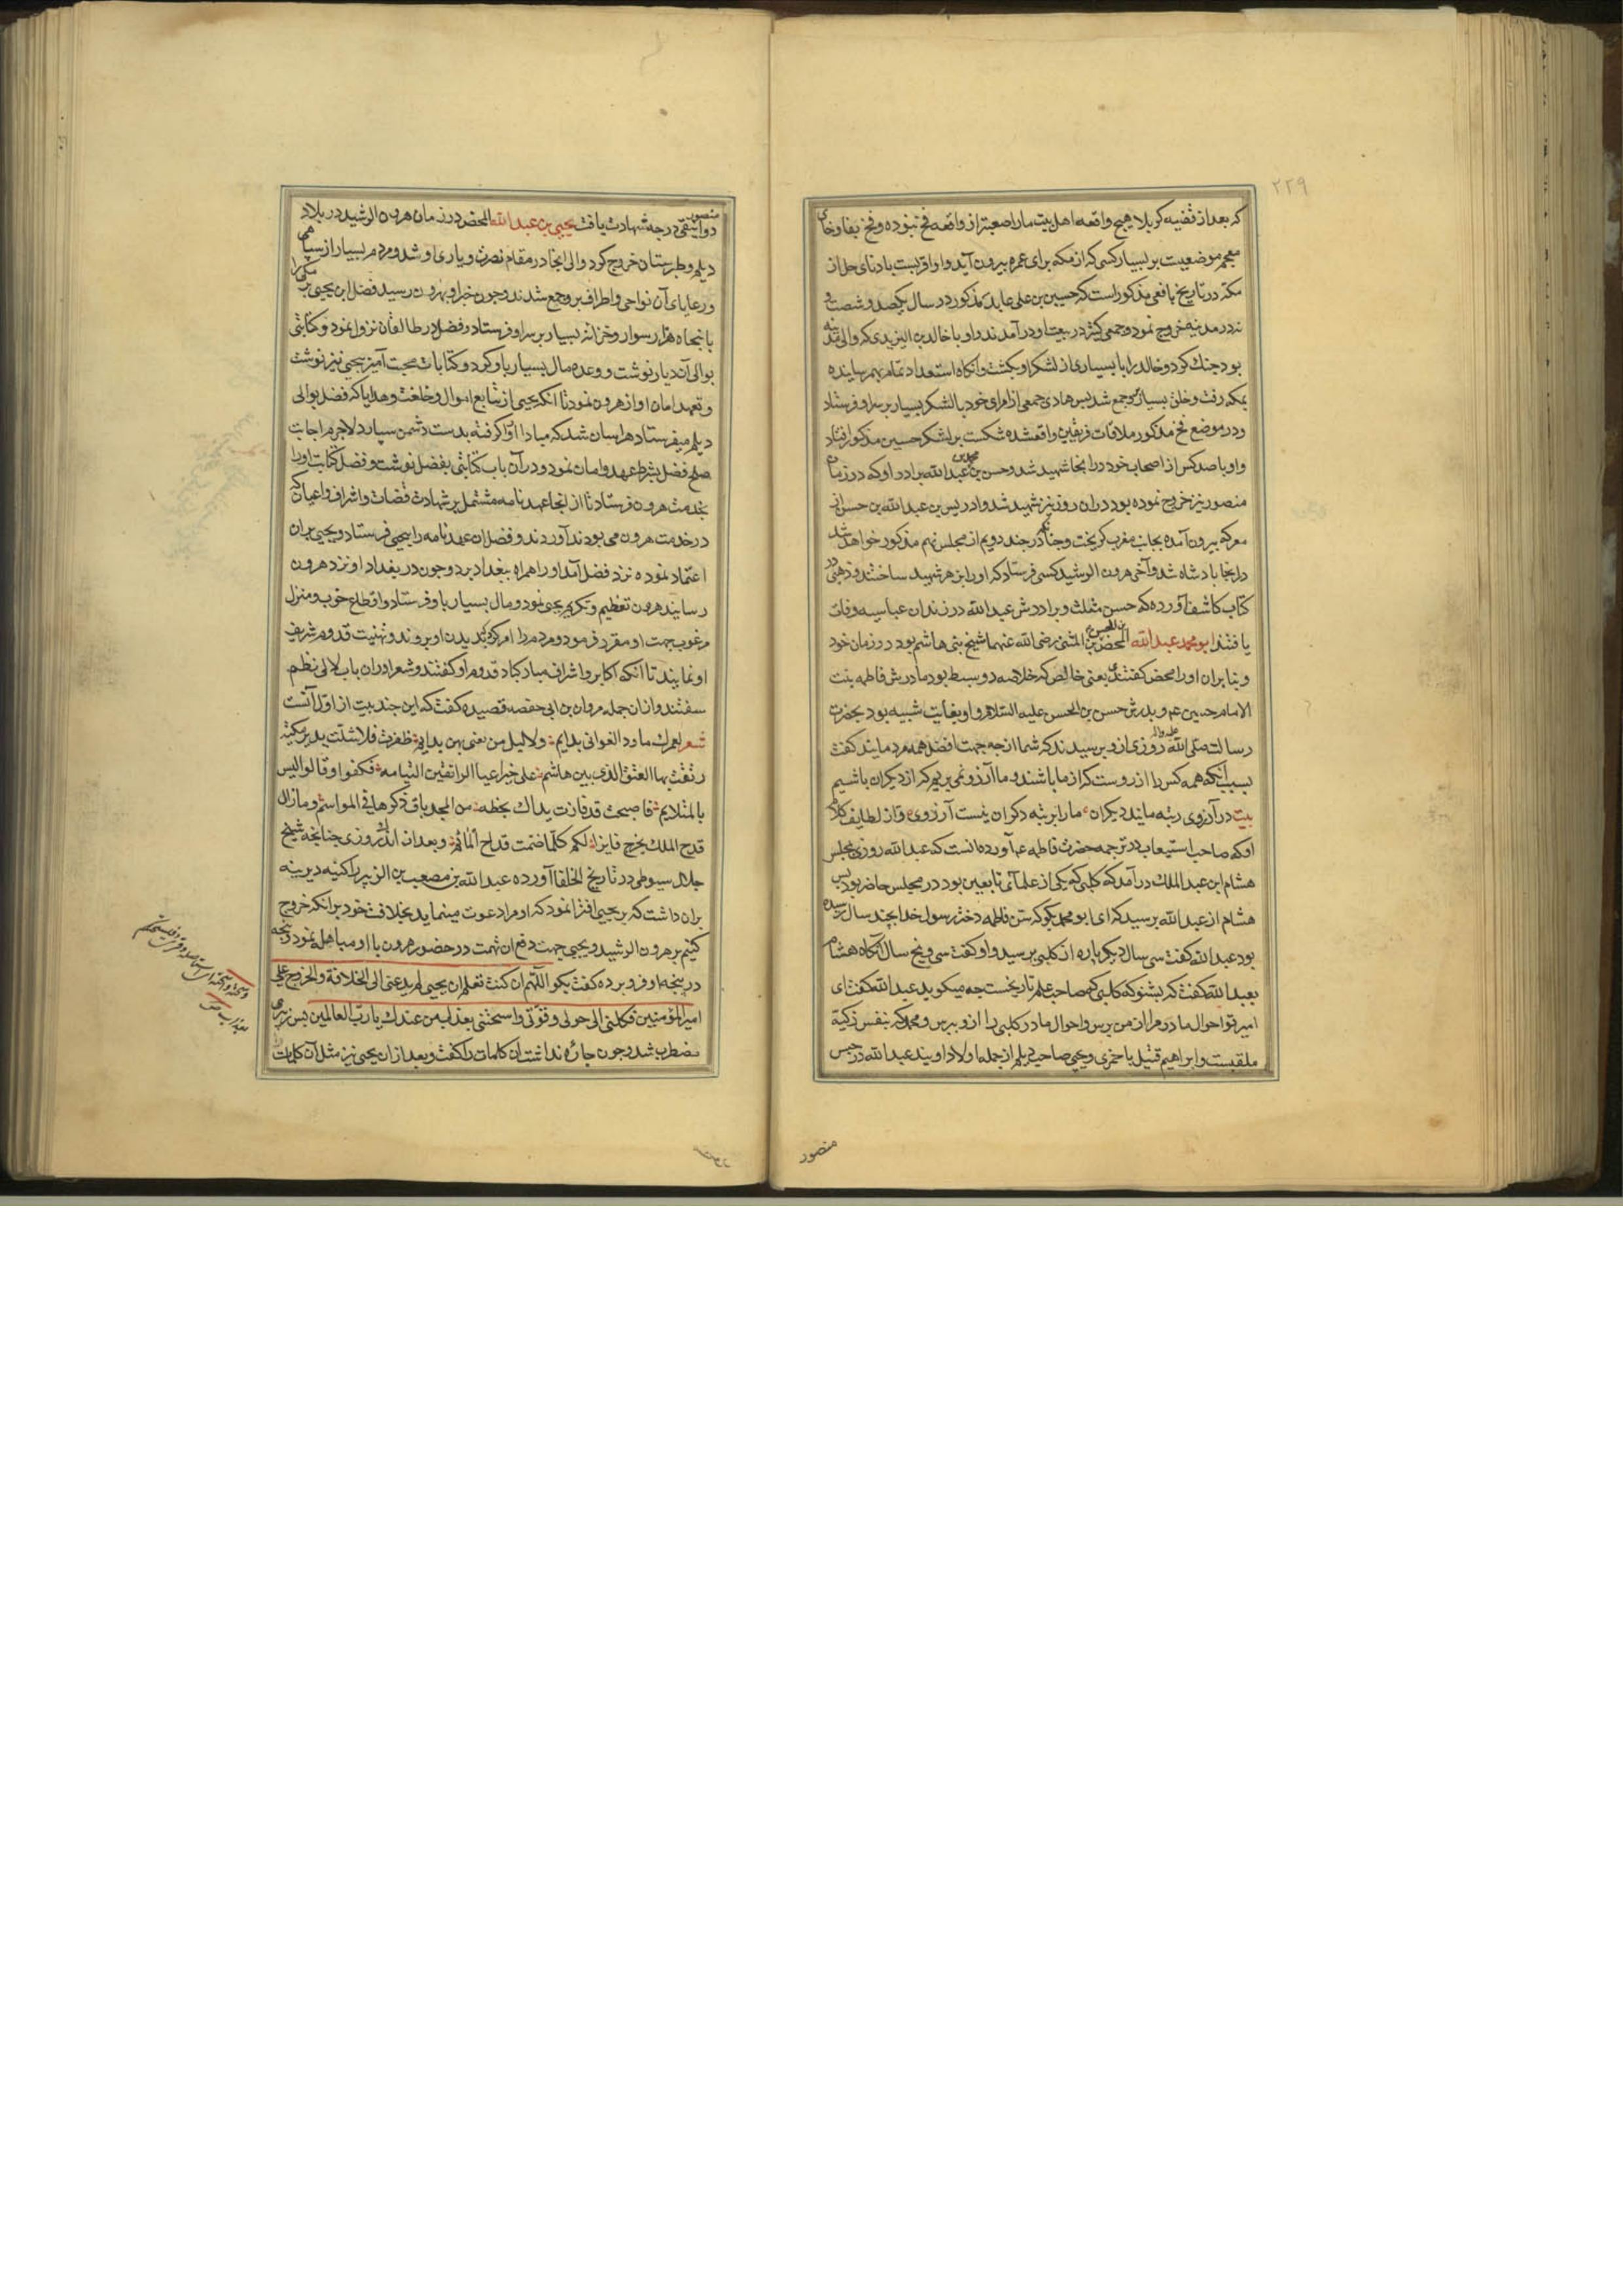 ۲۲۹
که بعد از قضیه کربلا هیچ واقعه اهل بیت ما را صعبتر از واقعه فخ نبوده و فخ بفا و خای
معجم موضعیست بر یسار کسی که از مکه برای عمره بیرون آید و او اقربست بادنای حل از
مکه در تاریخ یافعی مذکور است که حسین بن علی عابد مذکور در سال یکصد و شصت و
نه در مدینه خروج نمود و جمعی کثیر در بیعت او در آمدند و او با خالد بن الیزیدی که والی مدینه
بود جنک کرد و خالد را با بسیاری از لشکر او بکشت و آنکاه استعداد تمام بهم رسانیده
بمکه رفت و خلق بسیار برو جمع شد پس هادی جمعی از امرای خود با لشکر بسیار بر سر او فرستاد
و در موضع فخ مذکور ملاقات فریقین واقعشده شکست بر لشکر حسین مذکور افتاد
و او با صد کس از اصحاب خود در انجا شهید شد و حسن بن محمد بن عبد الله برادر او که در زمان
منصور نیز خروج نموده بود در ان روز نیز شهید شد و ادریس بن عبد الله بن حسن از
معرکه بیرون آمده بجانب مغرب کریخت و چنانکه در جند دویم از مجلس نهم مذکور خواهد شد
در انجا بادشاه شد و آخر هرون الرشید کسی فرستاد که او را بزهر شهید ساختند و ذهبی در
کتاب کاشف آورده که حسن مثلث و برادرش عبد الله در زندان عباسیه وفات
یافتند ابو محمد عبد الله المحض بن الحسن المثنی رضی الله عنهما شیخ بنی هاشم بود در زمان خود
و بنا بران او را محض کفتندی یعنی خالص که خلاصه دو سبط بود مادرش فاطمه بنت
الامام حسین عم و پدرش حسن بن الحسن علیه السلام و او بغایت شبیه بود بحضرت
رسالت صلی الله علیه واله روزی از و پرسیدند که شما از چه جهت افضل همه مردمانید کفت
بسبب آنکه همه کس را آرزوست که از ما باشند و ما آرزو نمی بریم که از دیکران باشیم
بیت در آرزوی رتبه مایند دیکران ما را برتبه دکران نیست آرزوی و از لطایف کلام
او که صاحب استیعاب در ترجمه حضرت فاطمه عم آورده انست که عبد الله روزی بمجلس
هشام ابن عبد الملک در آمد که کلبی که یکی از علمآئ تابعین بود در مجلس حاضر بود پس
هشام از عبد الله پرسید که ای ابو محمد بکو که سن فاطمه دختر رسول خدا بچند سال رسیده
بود عبد الله کفت سی سال دیکر باره از کلبی پرسید و او کفت سی و پنج سال آنکاه هشام
بعبد الله کفت که بشنو که کلبی که صاحب علم تاریخست چه میکوید عبد الله کفت ای
امیر تو احوال مادر مرا از من پرس و احوال مادر کلبی را از و بپرس و محمد که بنفس زکیه
ملقبست و ابراهیم قتیل باخمری و یحیی صاحب دیلم از جمله اولاد اویند عبد الله در حبس
منصور
منصور
دوانیقی درجه شهادت یافت یحیی بن عبد الله المحض در زمان هرون الرشید در بلاد
دیلم و طبرستان خروج کرد و والی انجا در مقام نصرت و یاری او شد و مردم بسیار از سپاهی
و رعایای آن نواحی و اطراف برو جمع شدند و چون خبر او بهرون رسید فضل ابن یحیی برمکی را
با پنجاه هزار سوار و خزانه بسیار بر سر او فرستاد و فضل در طالقان نزول نمود و کتابتی
بوالی آن دیار نوشت و وعده مال بسیار باو کرد و کتابات محبت آمیز بیحیی نیز نوشت
و تعهد امان او از هرون نمود تا آنکه یحیی از تتابع اموال و خلعت و هدایا که فضل بوالی
دیلم میفرستاد هراسان شد که مبادا او را کرفته بدست دشمن سپارد لاجرم اجابت
صلح فضل بشرط عهد و امان نمود و در آن باب کتابتی بفضل نوشت و فضل کتابت او را
بخدمت هرون فرستاد تا از انجا عهد نامه مشتمل بر شهادت قضات و اشراف و اعیان که
در خدمت هرون می بودند آوردند و فضل ان عهد نامه را بیحیی فرستاد و یحیی بران
اعتماد نموده نزد فضل آمد او را همراه ببغداد برد و چون در بغداد او نزد هرون
رسانید هرون تعظیم و تکریم یحیی نمود و مال بسیار باو فرستاد و اقطاع خوب و منزل
مرغوب جهت او مقرر فرمود و مردم را امر کرد که بدیدن او بروند و تهنیت قدوم شریف
او نمایند تا آنکه اکابر و اشراف مبارکباد قدوم او کفتند و شعرا دران باب لالی نظم
سفتند و ازان جمله مروان بن ابی حفصه قصیده کفت که این چند بیت از اول آنست
شعر لعمرک ما ود الغوانی بدایم ولا لیل من یعنی بهن بدایم ظفرت فلا شلت ید برمکیه
رتقت بها الفتق الذی بین هاشم علی حین اعیا الراتقین التیامه فکفوا وقالوا لیس
بالمتلایم فاصبحت قد فازت یداک بخطه من المجد باق ذکرها فی المواسم وما زال
قدح الملک یخرج فایزا لکم کلما ضمت قداح المساهم و بعد از اندک روزی چنانچه شیخ
جلال سیوطی در تاریخ الخلفا آورده عبد الله بن مصعب بن الزبیر را کینه دیرینه
بران داشت که بر یحیی افترا نمود که او مرا دعوت مینماید بخلافت خود بر انکه خروج
کنیم بر هرون الرشید و یحیی جهت دفع ان تهمت در حضور هرون با او مباهله نمود و پنجه
در پنجه او فرو برده کفت بکو اللهم ان کنت تعلم ان یحیی لم یدعنی الی الخلافة والخروج علی
امیر المؤمنین فکلنی الی حولی و قوتی واسحتنی بعذاب من عندک یا رب العالمین پس زبیری
مضطرب شد و چون چاره نداشت ان کلمات را کفت و بعد از ان یحیی نیز مثل آن کلمات